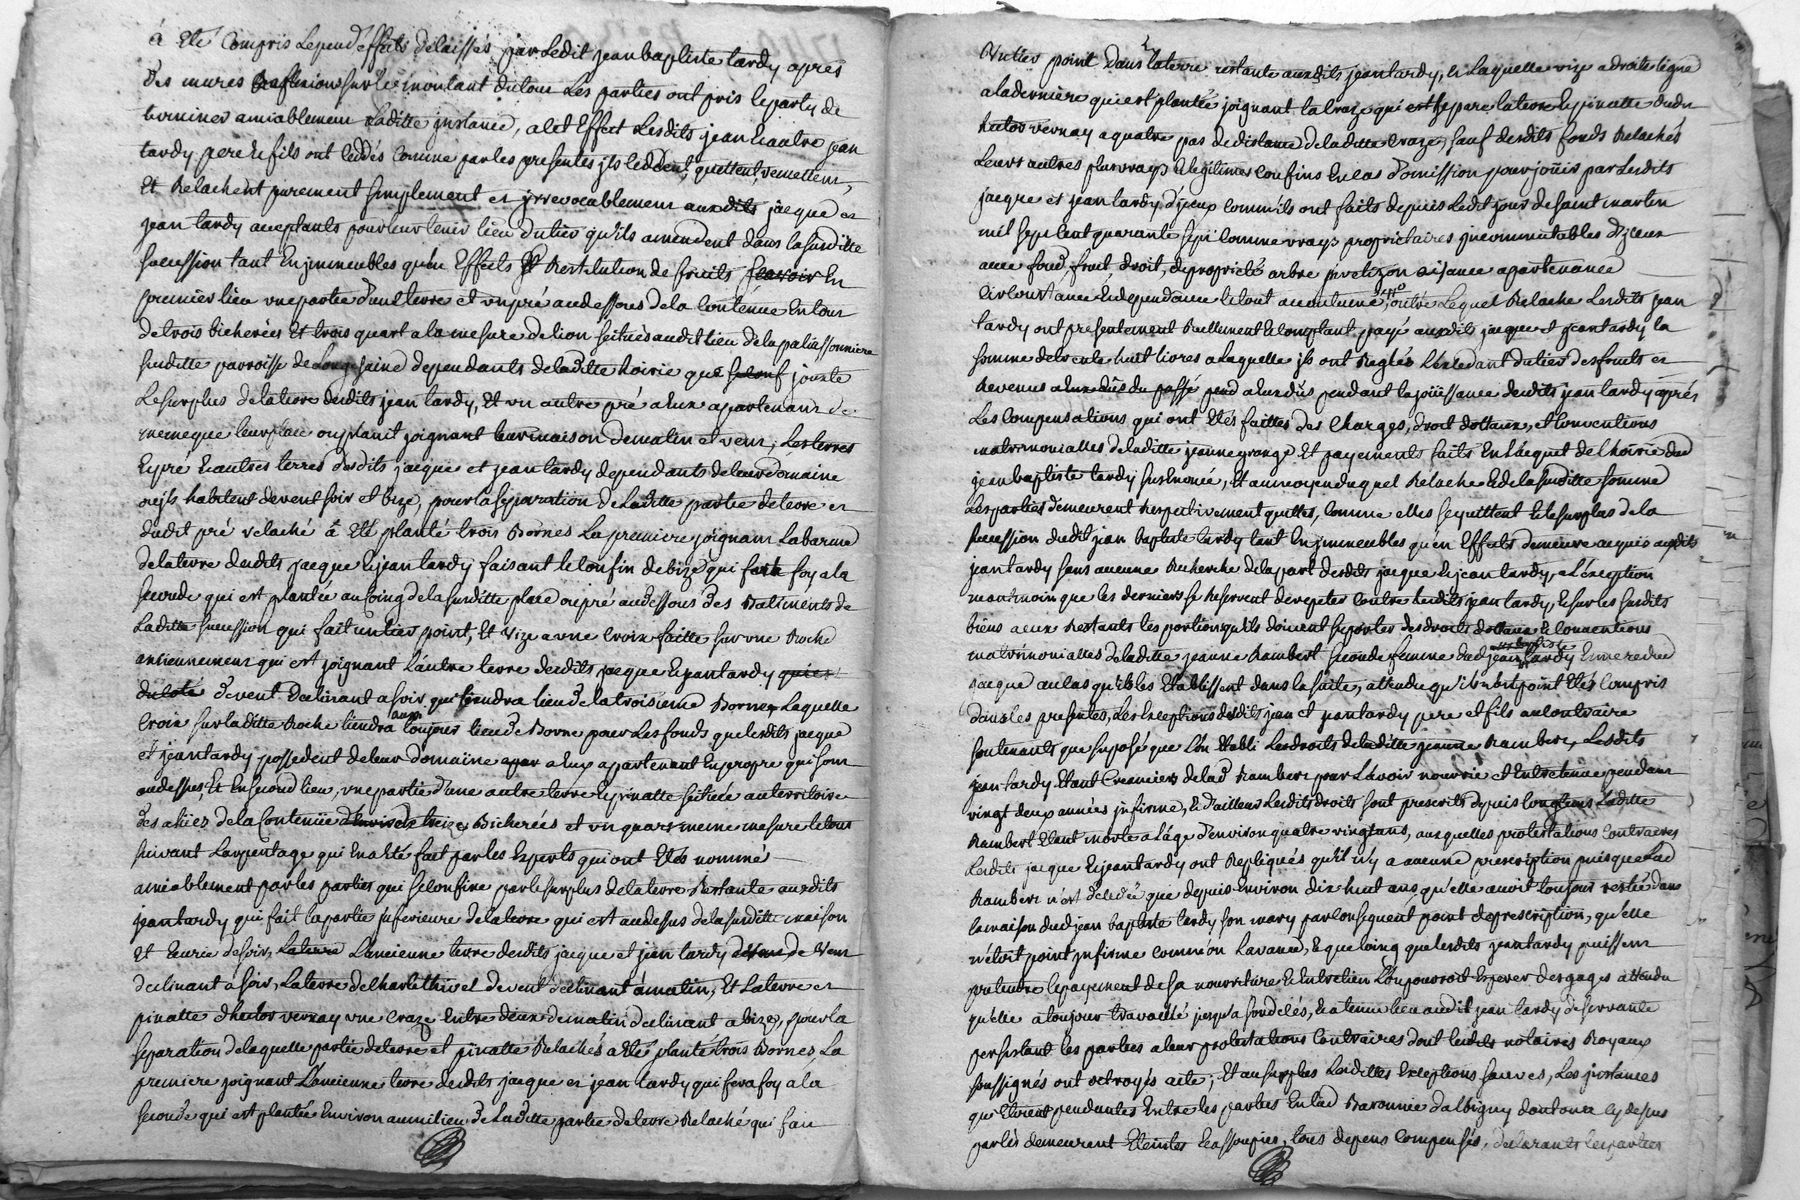 à Eté Compris Lepeud'effets délaissés par Ledit jean baptiste tardy après
Des mures Reflexions sur le montant dutour Les parties ont pris le party de
terminer amiablement Laditte jnstance, alet Effect Lesdits jean Eautre jean
tardy pere Efils ont ceddés comme par les presentes jls ceddent, quittent, remettent,
Et Relachent purement simplement et jrrevocablement auxdits jacque et
jean tardy acceptants pour leur tenir lieu dutier qu'ils amendent dans la susditte
sucession tant En jmmeubles qu'en Effects Et Restitution de fruits scavoir En
premier lieu une partie d'une terre et un pré au dessous de la Contenue En tout
de trois bicherées Et trois quart a la mesure de lion scitués audit lieu de la paliassonniere
susditte parroisse de Longesaine dependants de laditte hoirie que jouxte
Le surplus de la terre desdits jean tardy, Et un autre pré a Eux appartenant de
meme que leur place ou plani joignant leur maison de matin et vent, Les terres
Eypré Eautres terres desdits jacque et jean tardy dependants de leur Domaine
ou jls habitent devent soir et bize, pour la separation de Laditte partie de terre et
dudit pré relaché à Eté planté trois Bornes La premiere joignant La barme
de la terre desdits jacque Ejean tardy faisant le confin de bize qui foy a la
seconde qui est plantée au Coing de la susditte place ou pré au dessous des Batiments de
Laditte sucession qui fait un tier point, Et vize a une croix faitte sur une Roche
anciennement qui est joignant Lautre terre desdits jacque Ejean tardy
de vent declinant a soir, qui tiendra lieu de la troisieme Borne, Laquelle
Croix sur laditte Roche tiendra aussi toujours lieu de Borne pour Les fonds que lesdits jacque
et jean tardy possedent de leur domaine a Eux appartenant En propre qui sont
au dessus, Et En second lieu, une partie d'une autre terre Epinatte scituée au territoire
des de la Contenue Bicherées et un quart meme mesure le tout
suivant Larpentage qui En a Eté fait par les Experts qui ont Etés nommés
amiablement par les parties qui se confine par le surplus de la terre Restante auxdits
jean tardy qui fait la partie jnferieure de la terre qui est au dessus de la susditte maison
Et Ecurie de soir, Lancienne terre desdits jacque et jean tardy de vent
declinant a soir, La terre de Charle thivel de vent declinant a matin, Et La terre et
pinatte d'hector vernay une Craze Entre deux de matin declinant a bize, pour la
separation de laquelle partie de terre et pinatte Relachés a Eté planté trois Bornes La
premiere joignant L'ancienne terre desdits jacque et jean tardy qui fera foy a la
seconde qui est plantée Environ au milieu de Laditte partie de terre Relaché qui fait
Un tier point Dans la terre restante auxdits jean tardy, & Laquelle vize a droite ligne
a la derniere qui est plantée joignant la Craze qui separe la terre Epinatte dudit
hector vernay a quatre pas de distance de laditte Craze, sauf desdits fonds Relachés
Leurs autres plus vrays & legitimes Confins En cas d'omission pour jouir par Lesdits
jacque et jean tardy d'jceux comm'ils ont faits depuis Ledit jour de saint martin
mil sept cent quarante sept comme vrays proprietaires jncommutables d'jceux
avec fond, fruit, droit, de proprieté arbre aisance apartenance
Circonstance Edependance le tout accoutumé, outre Lequel Relache Lesdits jean
tardy ont presentement Reellement Ecomptant payé auxdits jacque et jean tardy la
somme de trente huit livres a laquelle jls ont Reglés L'Exedant du tier des fruits et
Revenus a Eux dûs du passé pend a Eux dûs pendant la jouissance desdits jean tardy aprés
Les Compensations qui ont Etés faittes des Charges, droit dottaux, et Conventions
matrimonialles de laditte jeanne grange Et payements faits En Lacquit de L'hoirie dud
jean baptiste tardy susnomé, Et au moyen duquel Relache Ede la susditte somme
Les parties demeurent Respectivement quittes, comme elles se quittent Ele surplus de la
sucession dudit jean baptiste tardy tant En jmmeubles qu'en Effects demeure acquis auxdits
jean tardy sans aucune Recherche de la part desdits jacque Ejean tardy a L'exception
neantmoin que les derniers se Reservent de repeter contre lesdits jean tardy, Esur les susdits
biens a eux Restants les portions qu'ils doivent suporter des droits dottaux Econventions
matrimonialles de laditte jeanne Rambert seconde femme dud jean baptiste tardy Emere dud
jacque au cas qu'ils les Etablissent dans la suitte, attendu qu'ils n'ont point Etés Compris
dans les presentes, Les Exceptions desdits jean et jean tardy pere et fils au contraire
soutenants que suposé que L'on Etabli Les droits de laditte jeanne Rambert, Lesdits
jean tardy Etant Creanciers de lad Rambert pour L'avoir nourrie et Entretenue pendant
vingt deux années jnfirme, & D'ailleurs Lesdits droits sont prescrits depuis longtems Laditte
Rambert Etant morte a L'âge d'environ quatre vingt ans, auxquelles protestations Contraires
Lesdits jacque Ejean tardy ont Repliqués qu'il n'y a aucune prescription puisque Lad
Rambert n'est décédée que depuis Environ dix huit ans, qu'elle avoit toujour restée dans
la maison dud jean baptiste tardy son mary par consequent point de prescription, qu'elle
n'étoit point jnfirme comm'on Lavance, Eque loing que lesdits jean tardy puissent
pretendre le payement de sa nourriture Eentretien L'on pourroit Exiger des gages attendu
qu'elle a toujour travaillé jusqu'a son décés, & a tenu lieu audit jean tardy de servante
persistant les parties a leur protestations Contraires dont lesdits notaires Royaux
soussignés ont octroyés acte; Et au surplus Lesdittes Exceptions sauves, Les jnstances
qu'Etoient pendantes Entre les parties En lad Baronnie d'albigny dont on a cy dessus
parlés demeurent Eteintes Eassoupies, tous depens compensés, declarants Les parties